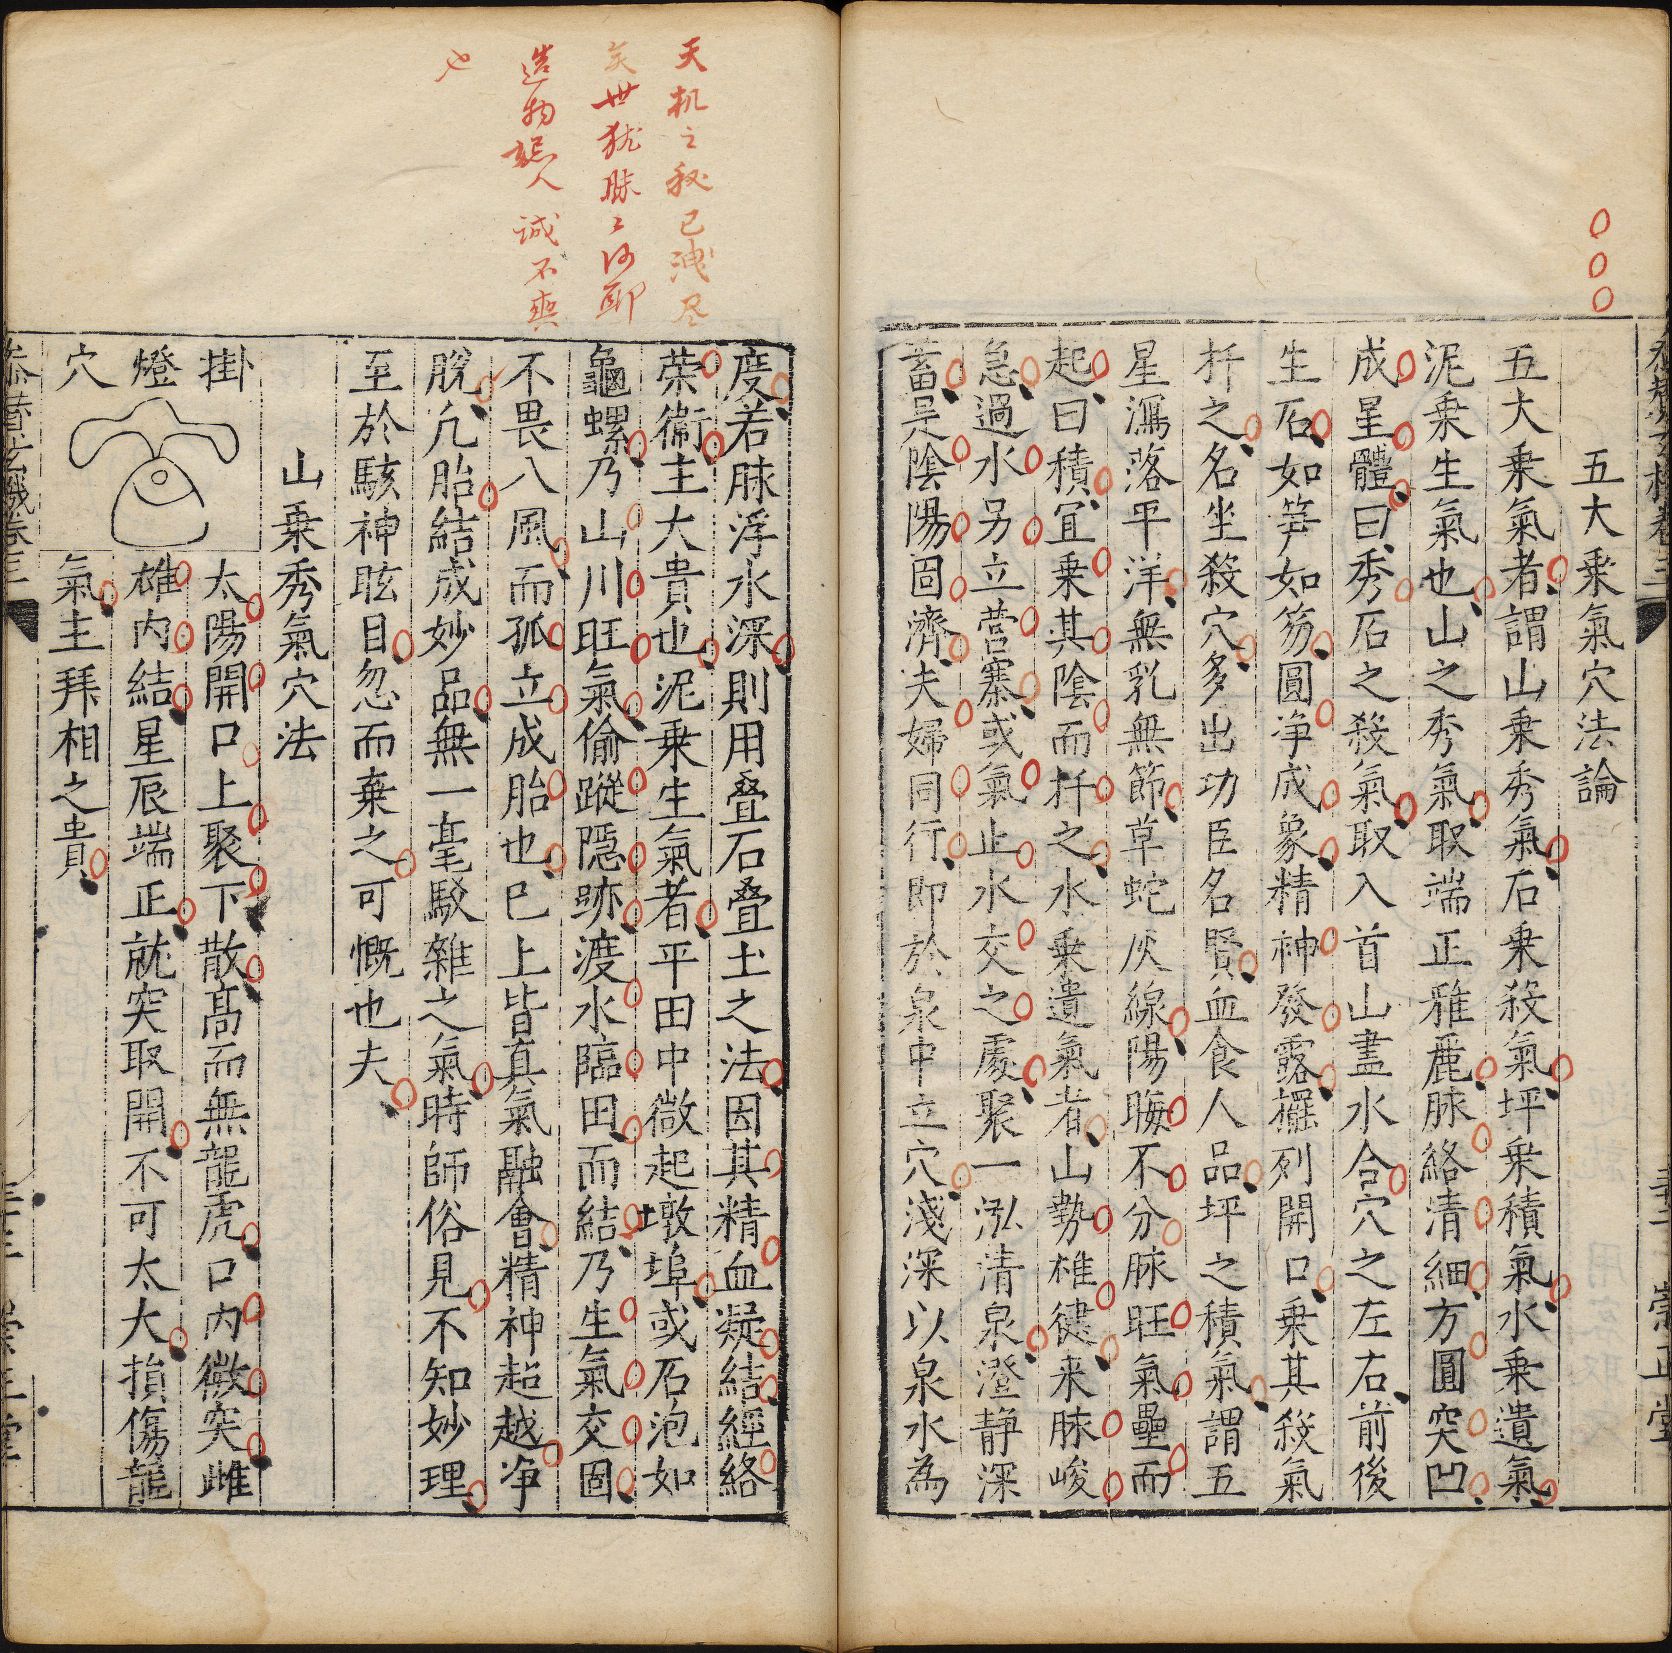 五大乘氣穴法論
五大乘氣者謂山乘秀氣石乘殺氣坪乘積氣水乘遺氣
泥乘生氣也山之秀氣取端正雅麗脉絡清細方圓突凹
成星體曰秀石之殺氣取入首山盡水合穴之左右前後
生石如笋如笏圓净成象精神發露擺列開口乘其殺氣
扦之名坐殺穴多出功臣名賢血食人品坪之積氣謂五
星瀉落平洋無乳無節草蛇灰線陽晦不分脉旺氣壘而
起曰積宜乘其陰而扦之水乘遺氣者山勢雄健来脉峻
急過水另立營寨或氣止水交之處聚一泓清泉澄静深
蓄是陰陽固濟夫婦同行即於泉中立穴淺深以泉水為
天机之秘已洩尽
矣世犹昧〻何耶
造物誤人誠不爽
也
度若脉浮水深則用叠石叠土之法因其精血凝結經絡
荣衞主大貴也泥乘生氣者平田中微起墩埠或石泡如
龜螺乃山川旺氣偷蹤隱跡渡水臨田而結乃生氣交固
不畏八風而孤立成胎也巳上皆真氣融會精神超越净
脫凢胎結成妙品無一毫駁雜之氣時師俗見不知妙理
至於駭神眩目忽而棄之可慨也夫
山乘秀氣穴法
掛燈穴
太陽開口上聚下散高而無龍虎口内微突雌
雄内結星辰端正就突取開不可太大損傷龍
氣主拜相之貴